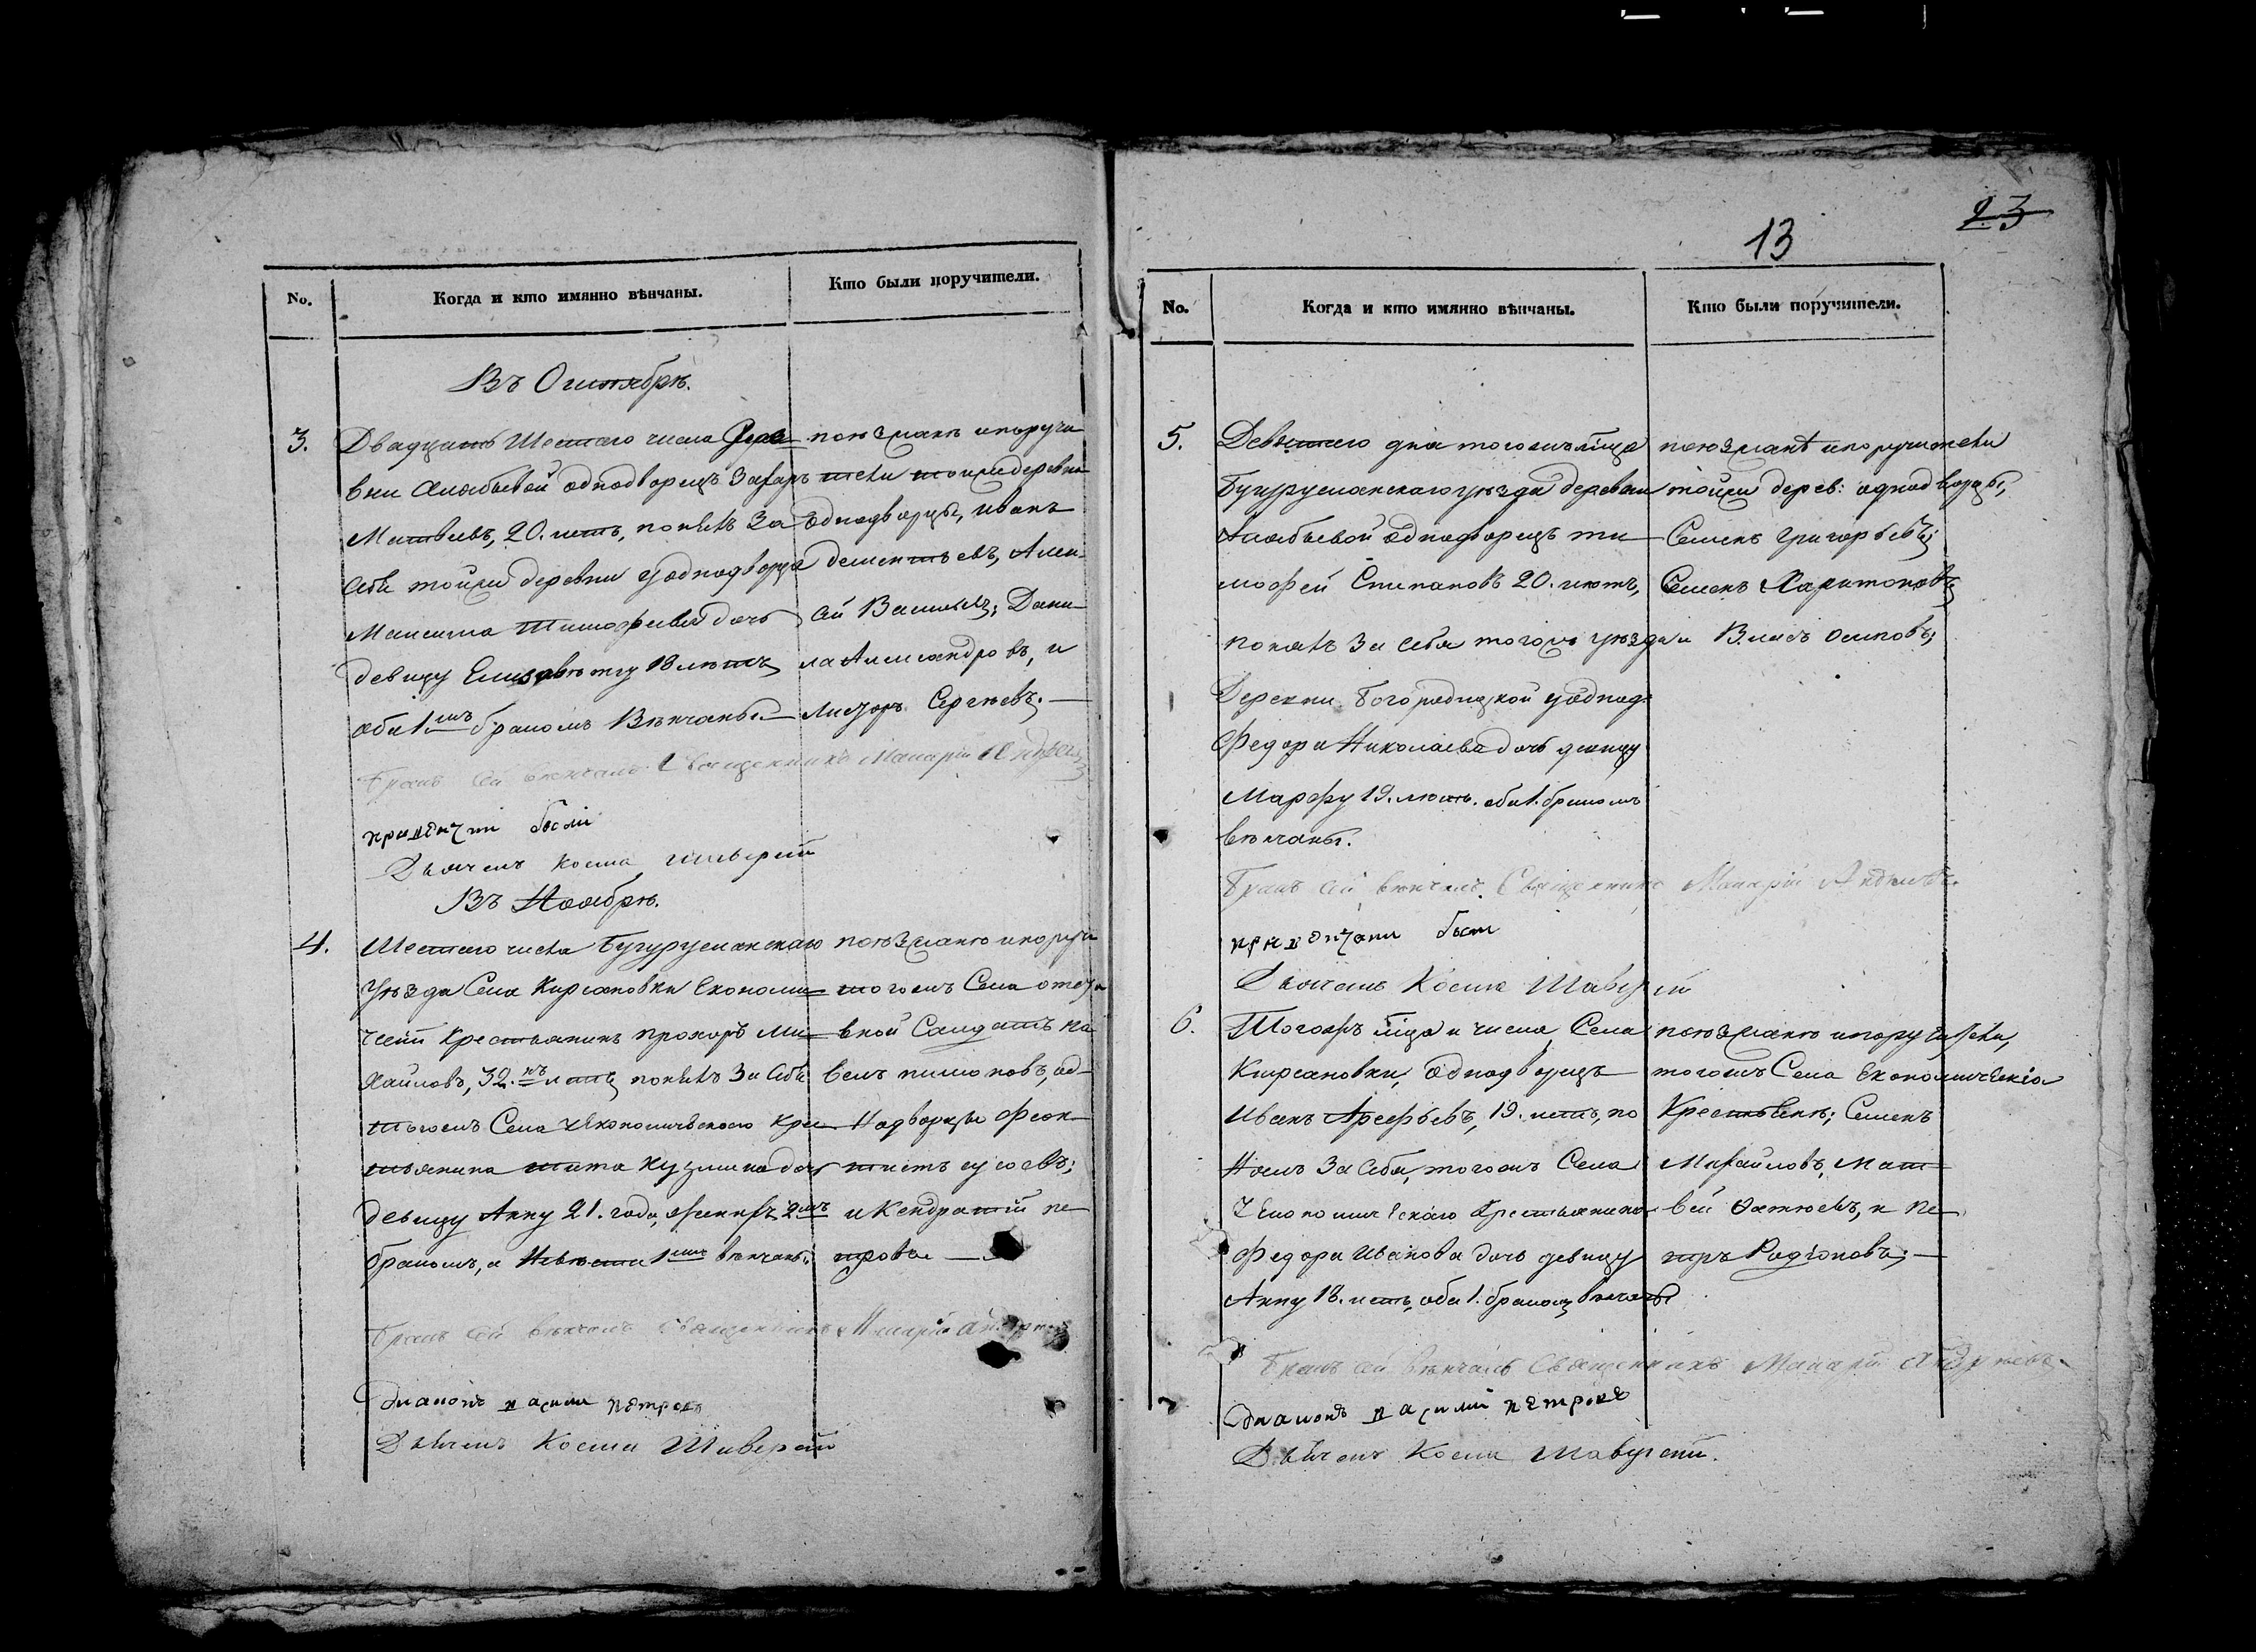 No.
Когда и кто имянно вѣнчаны.
Кто были поручители.
Въ Октябрѣ.
3.
Двадцать Шестаго числа Дере
вни Алябьевой однодворецъ Захаръ
Матвѣевъ, 20. летъ, понялъ За
себя тойже деревни уоднодворца
Максима Тимофеева дочь
девицу Елизавѣту 18 лѣтъ
оба 1мъ бракомъ Вѣнчаны
поезжанѣ и поручи
тели тойже деревни
однодворцы, иванъ
дементьевъ, Алек-
сѣй Васильевъ; Дани-
ла Александровъ, и
Сергѣевъ.
Бракъ сей вѣнчалъ Священникъ Макарій Андреевъ
при венчаніи были
Дьячекъ Косма
Въ Ноябрѣ.
4.
Шестаго числа Бугурусланскаго
Уѣзда Села Кирсановки Економи
ческій Крестьянинъ прохоръ Ми
хайловъ, 32.хъ летъ понялъ За себя
тогожъ Села уЕкономическаго Кре
стьянина тита Кузмина дочь
девицу Анну 21. года, женихъ 2мъ
бракомъ, а Невѣста 1мъ вѣнчаны
поезжанѣ и поручи
тогожъ Села
вной Салдатъ па
велъ пимоновъ, од-
Нодворцы Феок-
тистъ
и Кендратій пе
тровы
Бракъ сей вѣнчалъ Священникъ Макарій Андреевъ
диаконъ петровъ
Дьячекъ Косма
13
23
No.
Когда и кто имянно вѣнчаны.
Кто были поручители.
5.
Девятаго дня тогожъ мѣсяца
Бугурусланскаго уѣзда деревни
Алябьевой однодворецъ ти
мофей Степановъ 20. лѣтъ,
понялъ За себя тогожъ уѣзда
Деревни Богородицкой уоднод:
Федора Николаева дочь девицу
Марфу 19. лѣтъ. оба 1. бракомъ
вѣнчаны.
поезжанѣ и поручители
тойже дерев: однодворцы,
Семенъ Григорьевъ;
Семенъ Харитоновъ
и Власъ Осиповъ;
Бракъ сей вѣнчалъ Священникъ Макарій Андреевъ.
при венчании были
Дьячекъ Косма
6.
Тогожъ мца и числа, Села
Кирсановки, Однодворецъ
Иванъ Арефьевъ, 19. летъ, по
Нялъ За себя, тогожъ Села
уЕкономическаго Крестьянина
Федора Иванова дочь девицу
Анну 18. летъ, оба 1. бракомъ вѣнчаны
поезжанѣ и поручители,
тогожъ Села Економическіе
Крестьяне; Семенъ
Михайловъ, Мат
вей и пе
тръ Родіоновъ;
Бракъ сей вѣнчалъ Священникъ Макарій Андреевъ.
диаконъ петровъ
Дьячекъ Косма